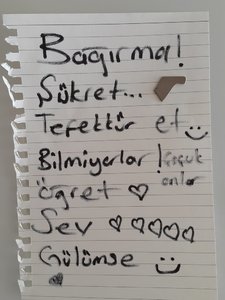 Bağırma!
Şükret...
Tefekkür et
Bilmiyorlar! çocuk
onlar
Öğret
Sev
Gülümse